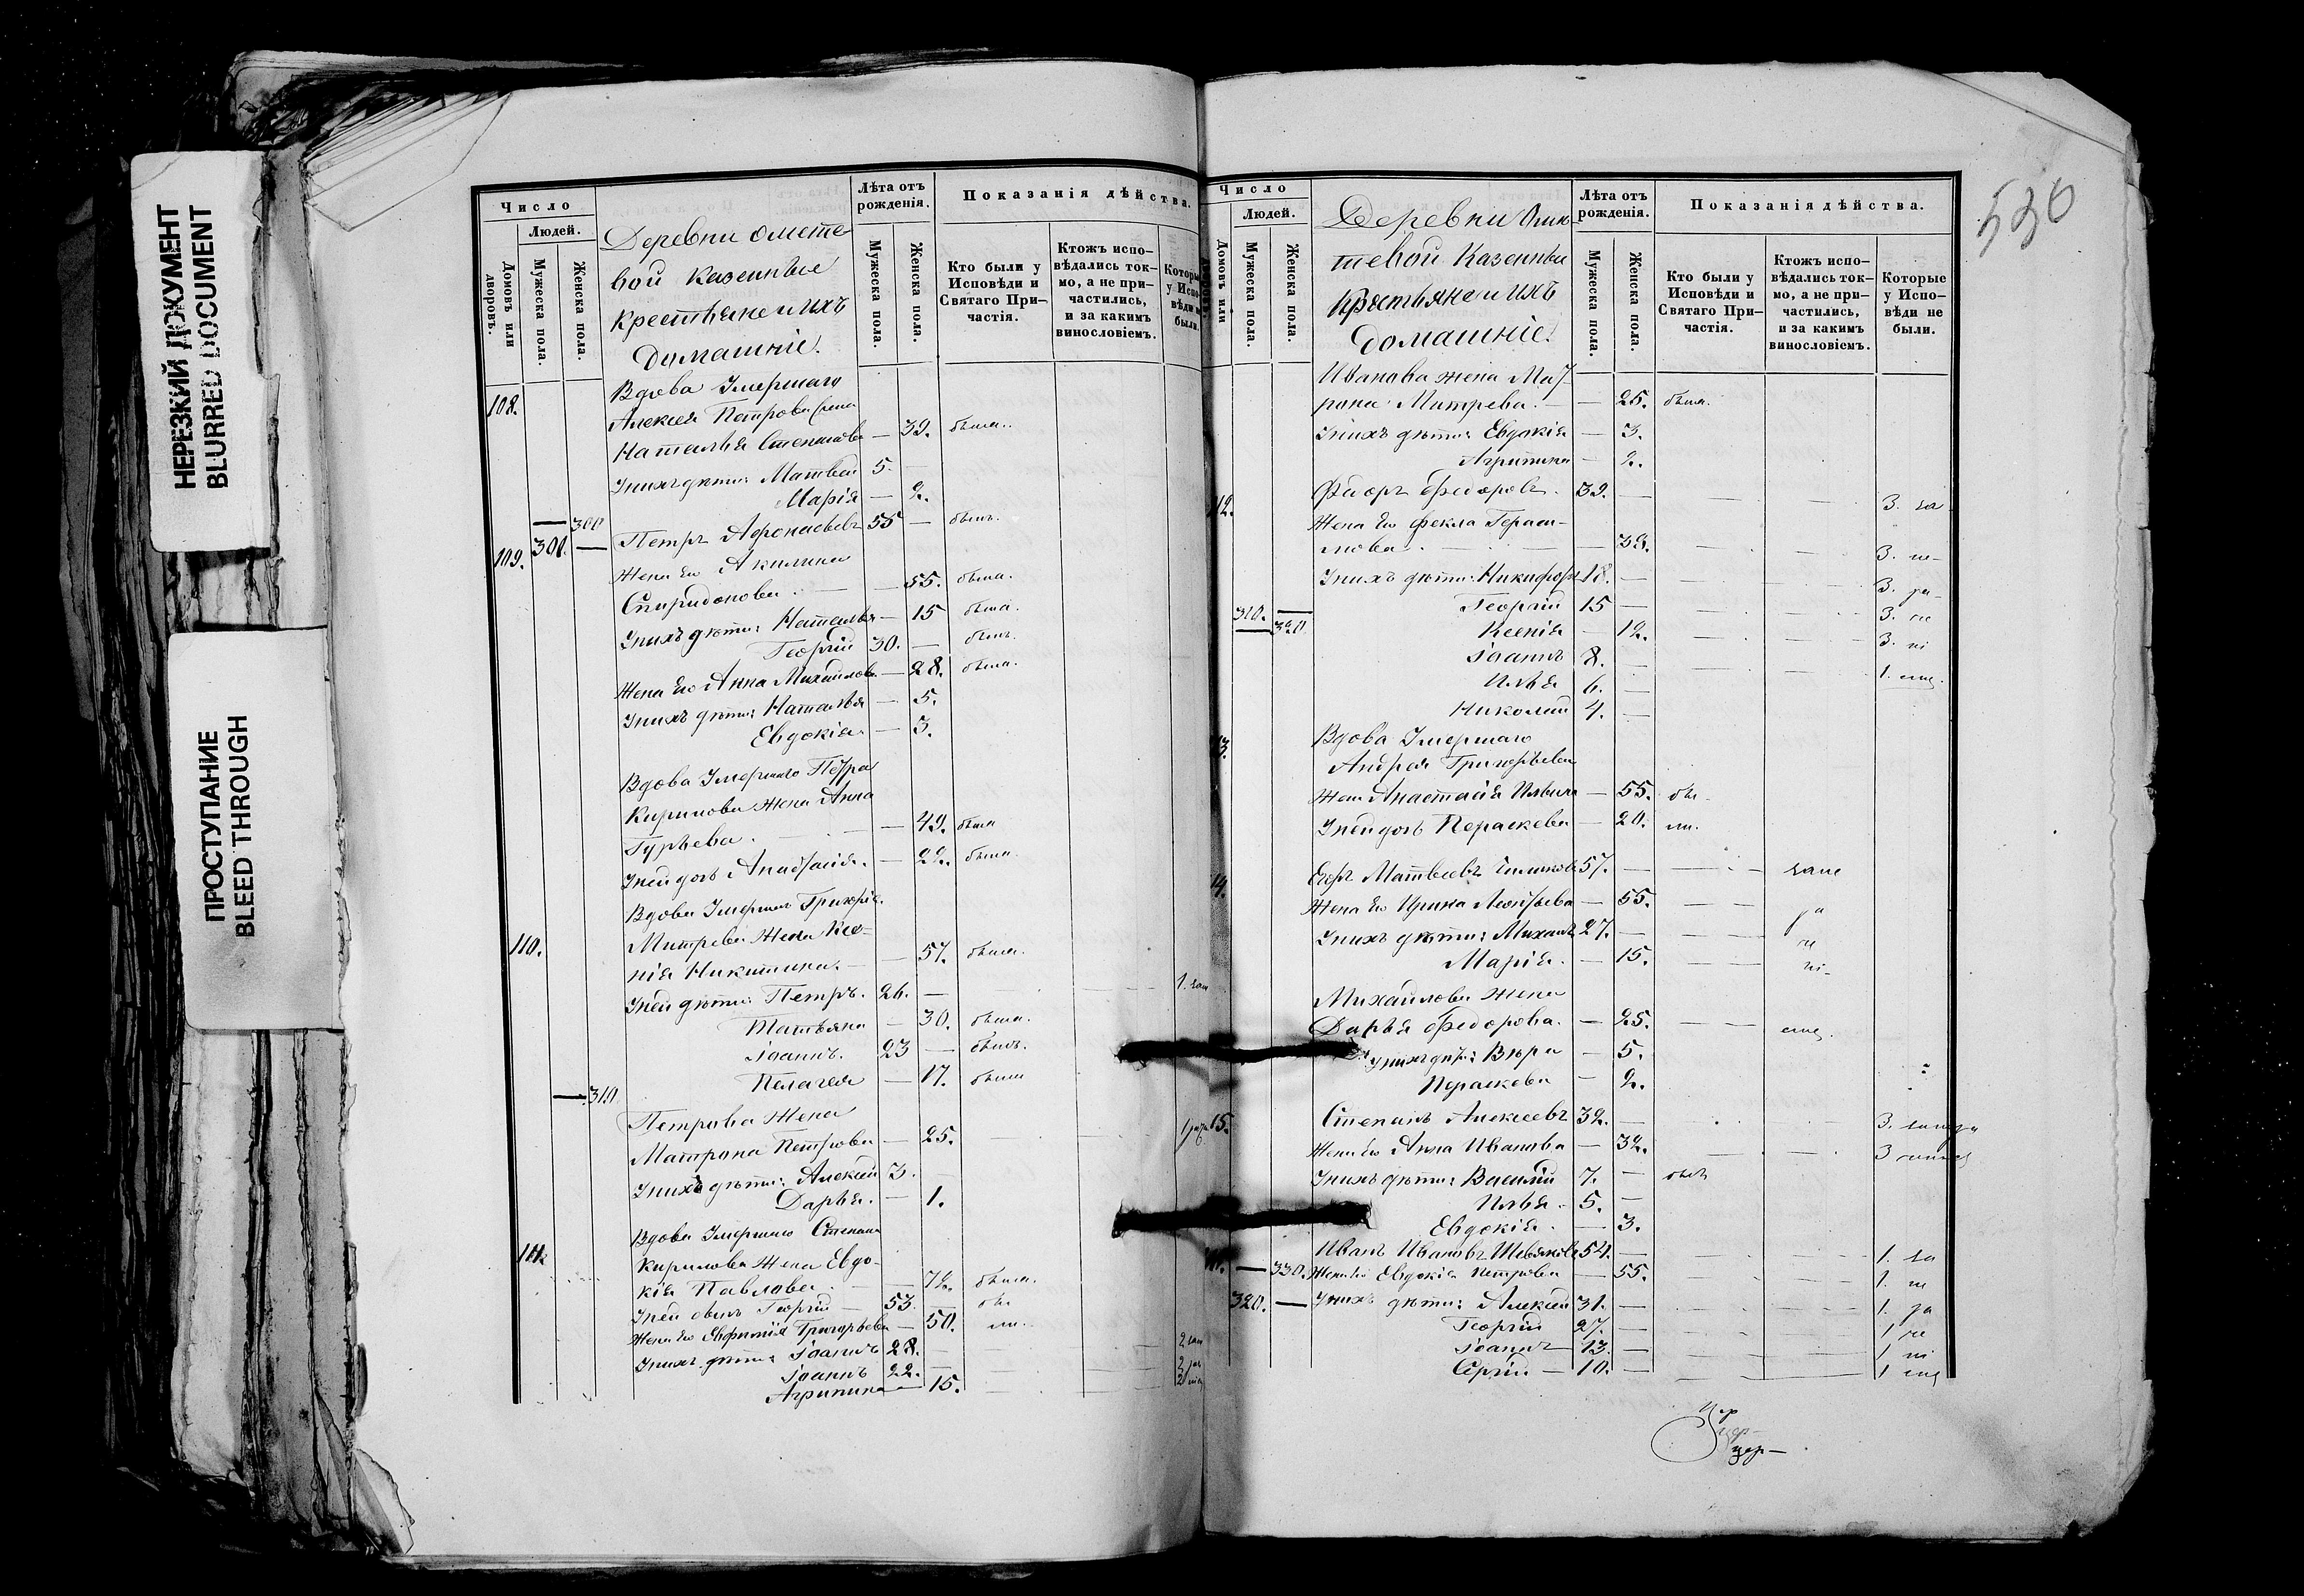 НЕРЕЗКИЙ ДОКУМЕНТ
BLURRED DOCUMENT
ПРОСТУПАНИЕ
BLEED THROUGH
Число
Людей.
Домовъ или дворовъ.
Мужеска пола.
Женска пола.
Деревни Омете-
вой Казенные
Крестьяне и ихъ
домашніе.
Лѣта отъ рожденія.
Мужеска пола.
Женска пола.
Показанія дѣйства.
Кто были у Исповѣди и Святаго При-частія.
Ктожъ испо-вѣдались ток-мо, а не при-частились, и за какимъ винословіемъ.
Которые у Испо-вѣди не были.
108. Вдова Умершаго
Алексея Петрова жена
Наталья Степанова — 39. была.
У нихъ дѣти: Матвей 5. —
Марія — 2.
— 300
109. 301. — Петръ Афонасьевъ 55 — былъ.
Жена его Акилина
Спиридонова. — 55. была.
У нихъ дѣти: Наталья — 15 была.
Георгій 30. — былъ.
Жена его Анна Михайлова — 28. была.
У нихъ дѣти: Наталья — 5.
Евдокія — 3.
Вдова Умершаго Петра
Кирилова жена Анна
Гурьева. — 49. была
У ней дочь Анастасія. — 22. была.
Вдова Умершаго Григорія
110. Митрева жена Ксе-
нія Никитина. — 57. была.
У ней дѣти: Петръ. 26. — 1. зап
Татьяна — 30. была.
Іоаннъ. 23 — былъ.
Пелагея — 17. была
— 310.
Петрова жена
Матрона Петрова — 25.
У нихъ дѣти: Алексей 3.
Дарья. — 1.
Вдова Умершаго Степана
111. Кирилова жена Евдо-
кія Павлова. — 72. была.
У ней сынъ Георгій — 53. — бы
Жена его Евфимія Григорьева — 50. ли.
У нихъ дѣти: Іоаннъ 28. —
Іоаннъ 22. —
Агрипина — 15.
530
Число
Людей.
Домовъ или
Мужеска пола.
Женска пола.
Деревни Оме-
тевой Казенные
Крестьяне и ихъ
домашніе.
Лѣта отъ рожденія.
Мужеска пола.
Женска пола.
Показанія дѣйства.
Кто были у Исповѣди и Святаго При-частія.
Ктожъ испо-вѣдались ток-мо, а не при-частились, и за какимъ винословіемъ.
Которые у Испо-вѣди не были.
Иванова жена Мат-
рона Митрева. — 25. была.
У нихъ дѣти: Евдокія — 3.
Агрипина — 2.
112. Федоръ Федоровъ. 39. — 3. за
Жена его Фекла Гераси-
мова. — 38. 3. не-
У нихъ дѣти: Никифоръ 18. — 3. ра-
Георгій 15 — 3. че
310. — 320. Ксенія — 12. 3. ні
Іоаннъ 8. — 1. емъ.
Илья 6. —
Николай 4. —
13. Вдова Умершаго
Андрея Григорьева
жена Анастасія Ильина — 55. бы-
У ней дочь Пераскева — 20. ли.
14. Егоръ Матвеевъ 57. — запе
Жена его Ирина Леонтьева — 55. ра
У нихъ дѣти: Михаилъ 27. — че
Марія. — 15. ні-
Михайлова жена
Дарья Федорова. — 25. емъ.
У нихъ дѣти: Вѣра — 5.
Пераскева — 2.
15. Степанъ Алексеевъ 32. —
Жена его Анна Иванова — 32.
У нихъ дѣти: Василій 7. — былъ
Илья. 5. —
Евдокія. — 3.
Иванъ Ивановъ Шевяковъ 54. — 1. за
— 330. Жена его Евдокія Петрова — 55. 1. не
320. — У нихъ дѣти: Алексей 31. — 1. ра
Георгій 27. — 1 че
Іоаннъ 13. — 1 ні
Сергій — 10. — 1 емъ